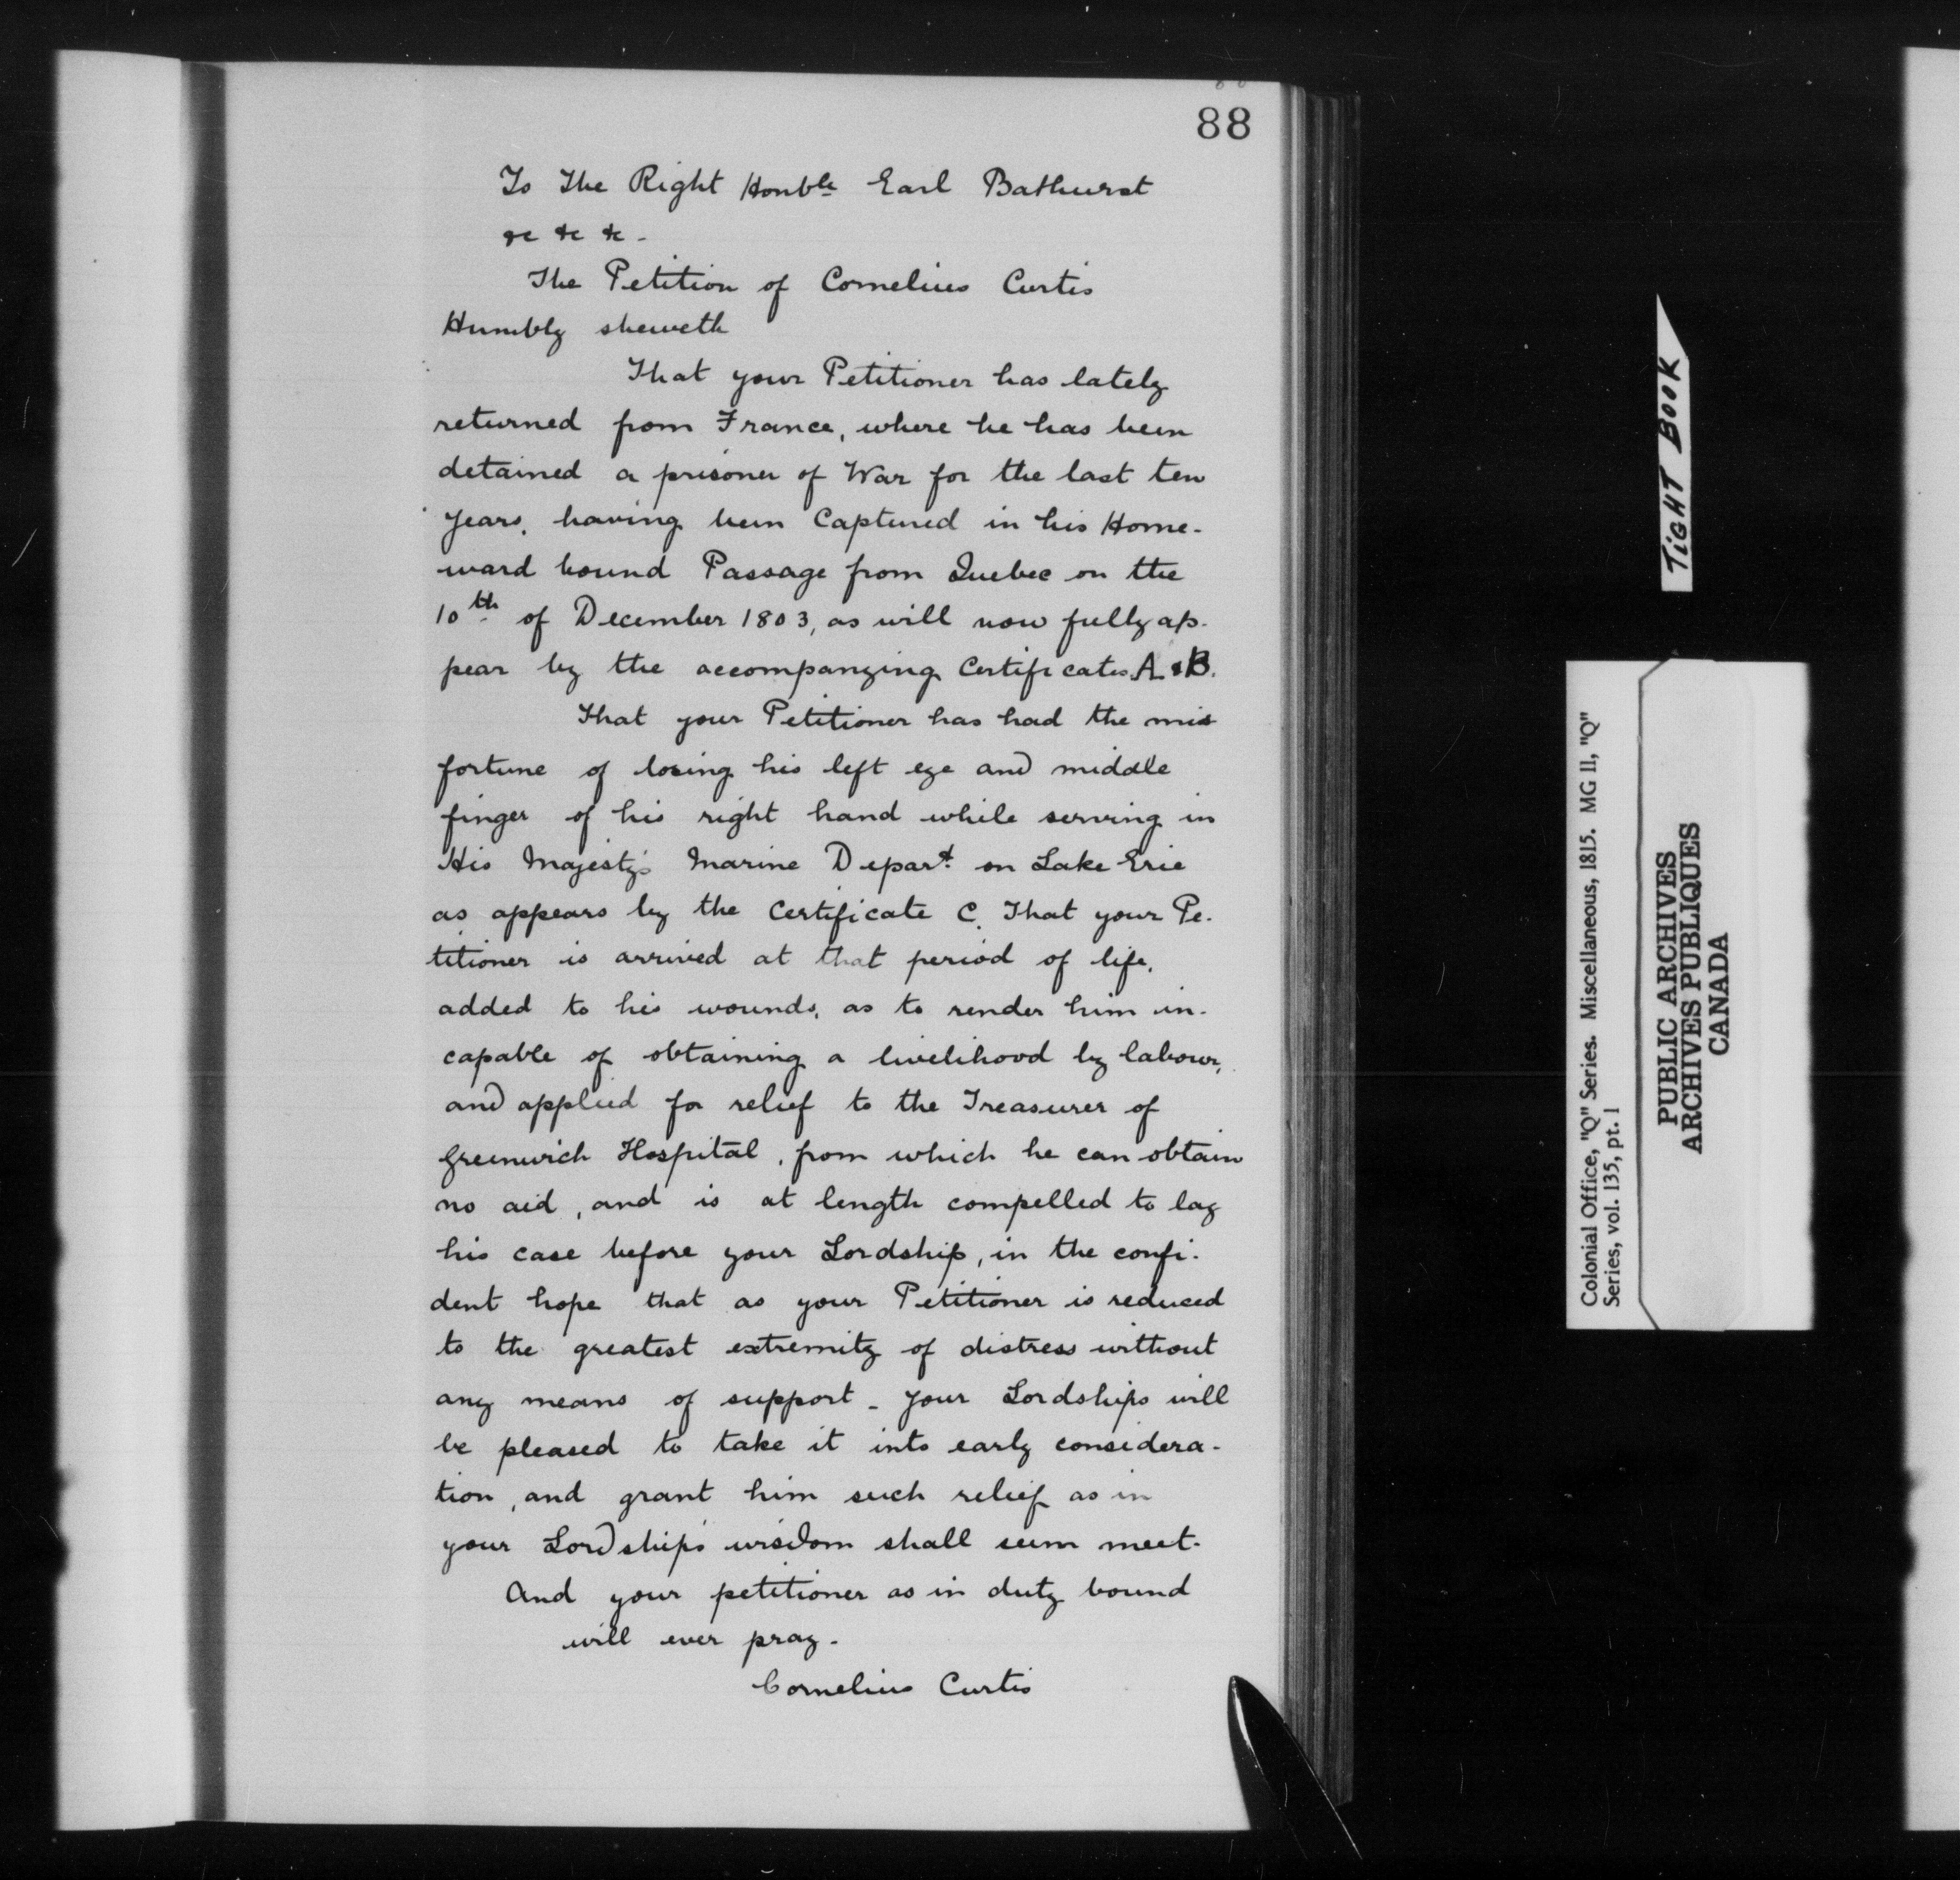 88
To The Right Honble Earl Bathurst
&c &c &c -
The Petition of Cornelius Curtis
Humbly sheweth
That your Petitioner has lately
returned from France, where he has been
detained a prisoner of War for the last ten
years, having been Captured in his Home-
ward bound Passage from Quebec on the
10th of December 1803, as will now fully ap-
pear by the accompanying Certificates A & B.
That your Petitioner has had the mis
fortune of losing his left eye and middle
finger of his right hand while serving in
His Majesty's Marine Depart. on Lake Erie
as appears by the Certificate C. That your Pe-
titioner is arrived at that period of life,
added to his wounds, as to render him in-
capable of obtaining a livelihood by labour,
and applied for relief to the Treasurer of
Greenwich Hospital, from which he can obtain
no aid, and is at length compelled to lay
his case before your Lordship, in the confi-
dent hope that as your Petitioner is reduced
to the greatest extremity of distress without
any means of support - your Lordships will
be pleased to take it into early considera-
tion, and grant him such relief as in
your Lordship's wisdom shall seem meet.
And your petitioner as in duty bound
will ever pray.
Cornelius Curtis
TIGHT BOOK
Colonial Office, "Q" Series. Miscellaneous, 1815. MG 11, "Q"
Series, vol. 135, pt. 1
PUBLIC ARCHIVES
ARCHIVES PUBLIQUES
CANADA